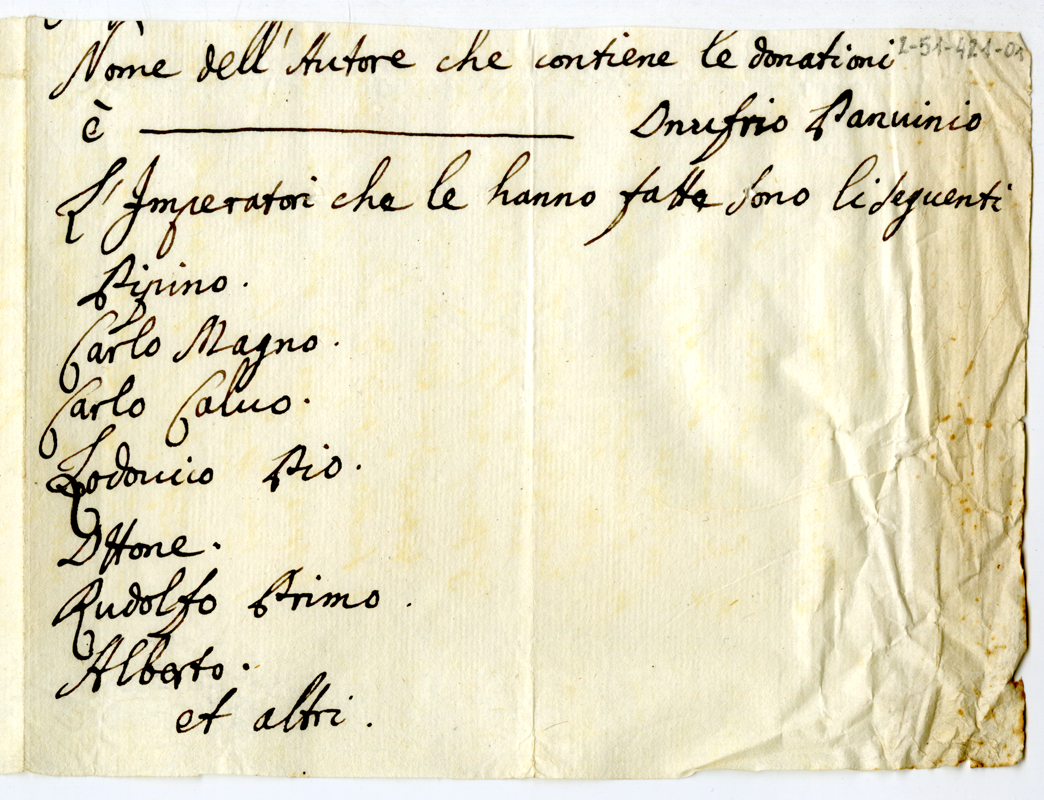 Nome dell' Autore che contiene le donationi
2-51-421-01
è ——— Onufrio Panuinio
L' Imperatori che le hanno fatte sono li seguenti
Pipino.
Carlo Magno.
Carlo Caluo.
Lodouico Pio.
Ottone.
Rudolfo Primo.
Alberto.
et altri.